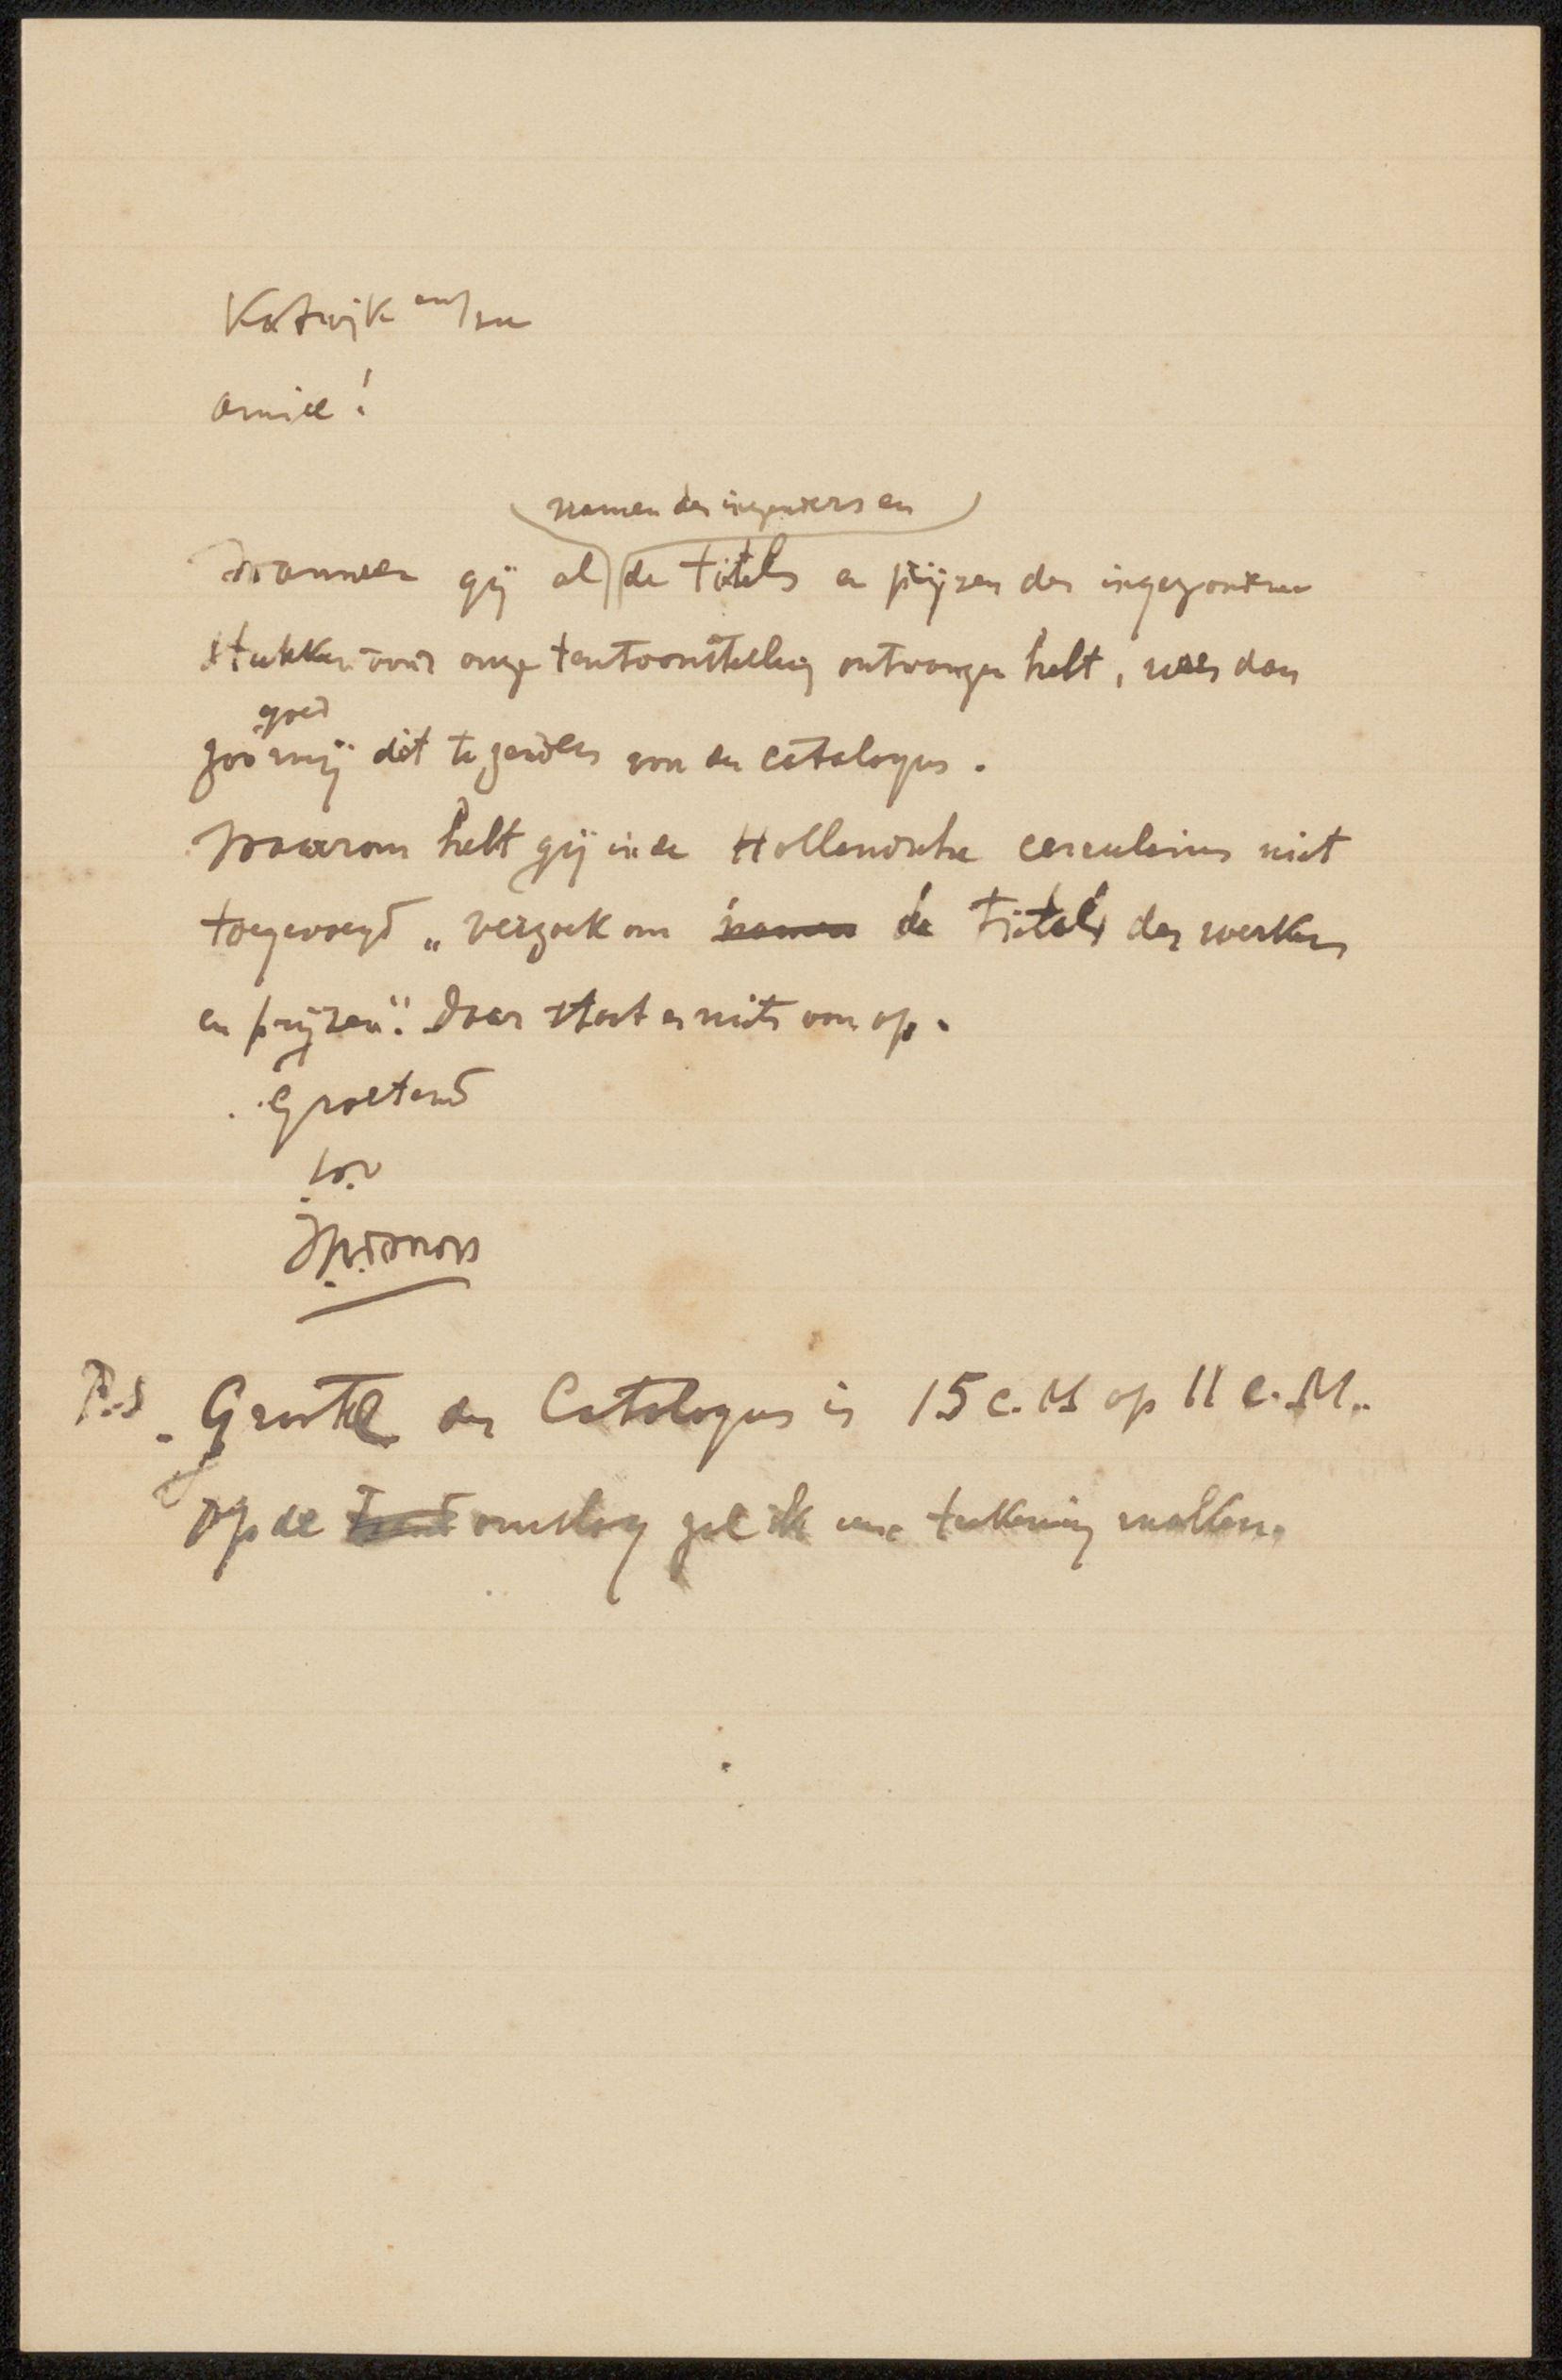 Katwijk an/zee
Amice!
namen der inzenders en
Wanneer gij al de titels en prijzen der ingezonden
stukken voor onze tentoonstelling ontvangen hebt, wees dan
goed
zoo mij dit te zenden voor den catalogus.
Waarom hebt gij in de Hollandsche cerculeires niet
toegevoegd „verzoek om namen de Titels der werken
en prijzen". Daar staat er niets van op.
Groetend
t.v.
P.S. Grootte der Catalogus is 15 c.M op 11 c.M.
Op de omslag zal ik eene teekening maken.